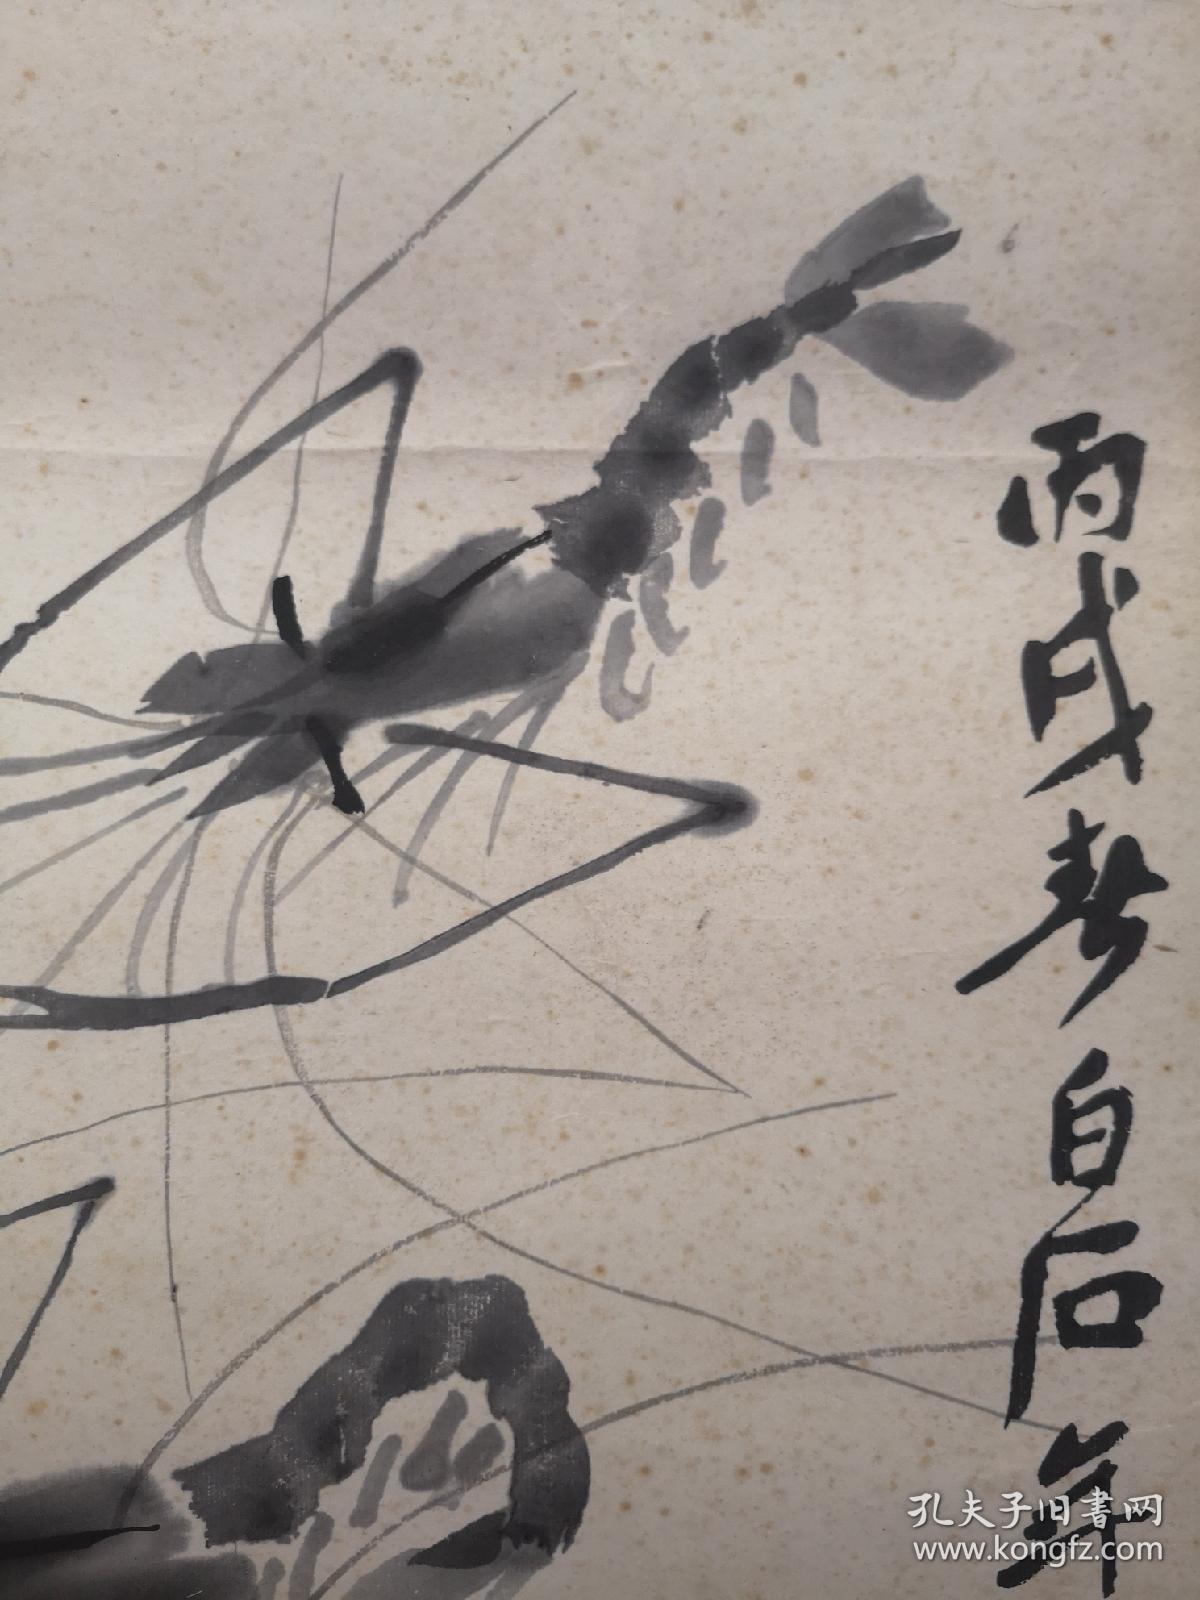 丙戌春白石年
孔夫子旧書网
www.kongfz.com